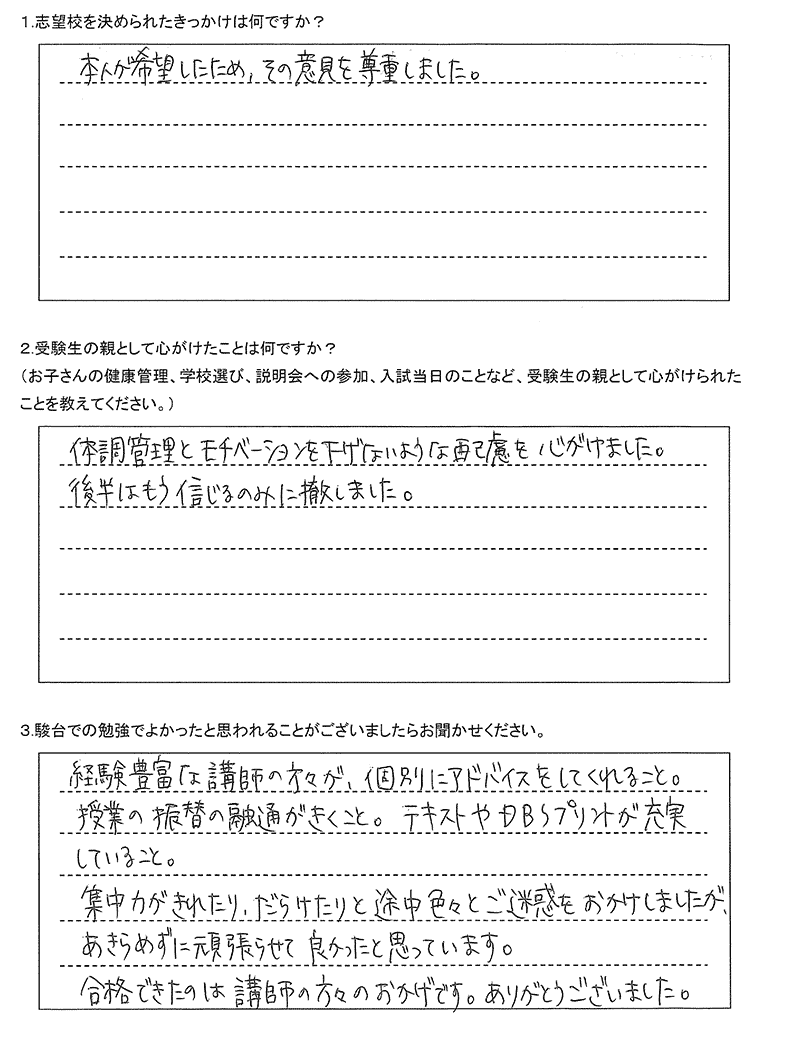 1.志望校を決められたきっかけは何ですか？
本人が希望したため、その意見を尊重しました。
2.受験生の親として心がけたことは何ですか？
（お子さんの健康管理、学校選び、説明会への参加、入試当日のことなど、受験生の親として心がけられた
ことを教えてください。）
体調管理とモチベーションを下げないような配慮を心がけました。
後半はもう信じるのみに徹しました。
3.駿台での勉強でよかったと思われることがございましたらお聞かせください。
経験豊富な講師の方々が、個別にアドバイスをしてくれること。
授業の振替の融通がきくこと。テキストやDBSプリントが充実
していること。
集中力がきれたり、だらけたりと途中色々とご迷惑をおかけしましたが、
あきらめずに頑張らせて良かったと思っています。
合格できたのは講師の方々のおかげです。ありがとうございました。